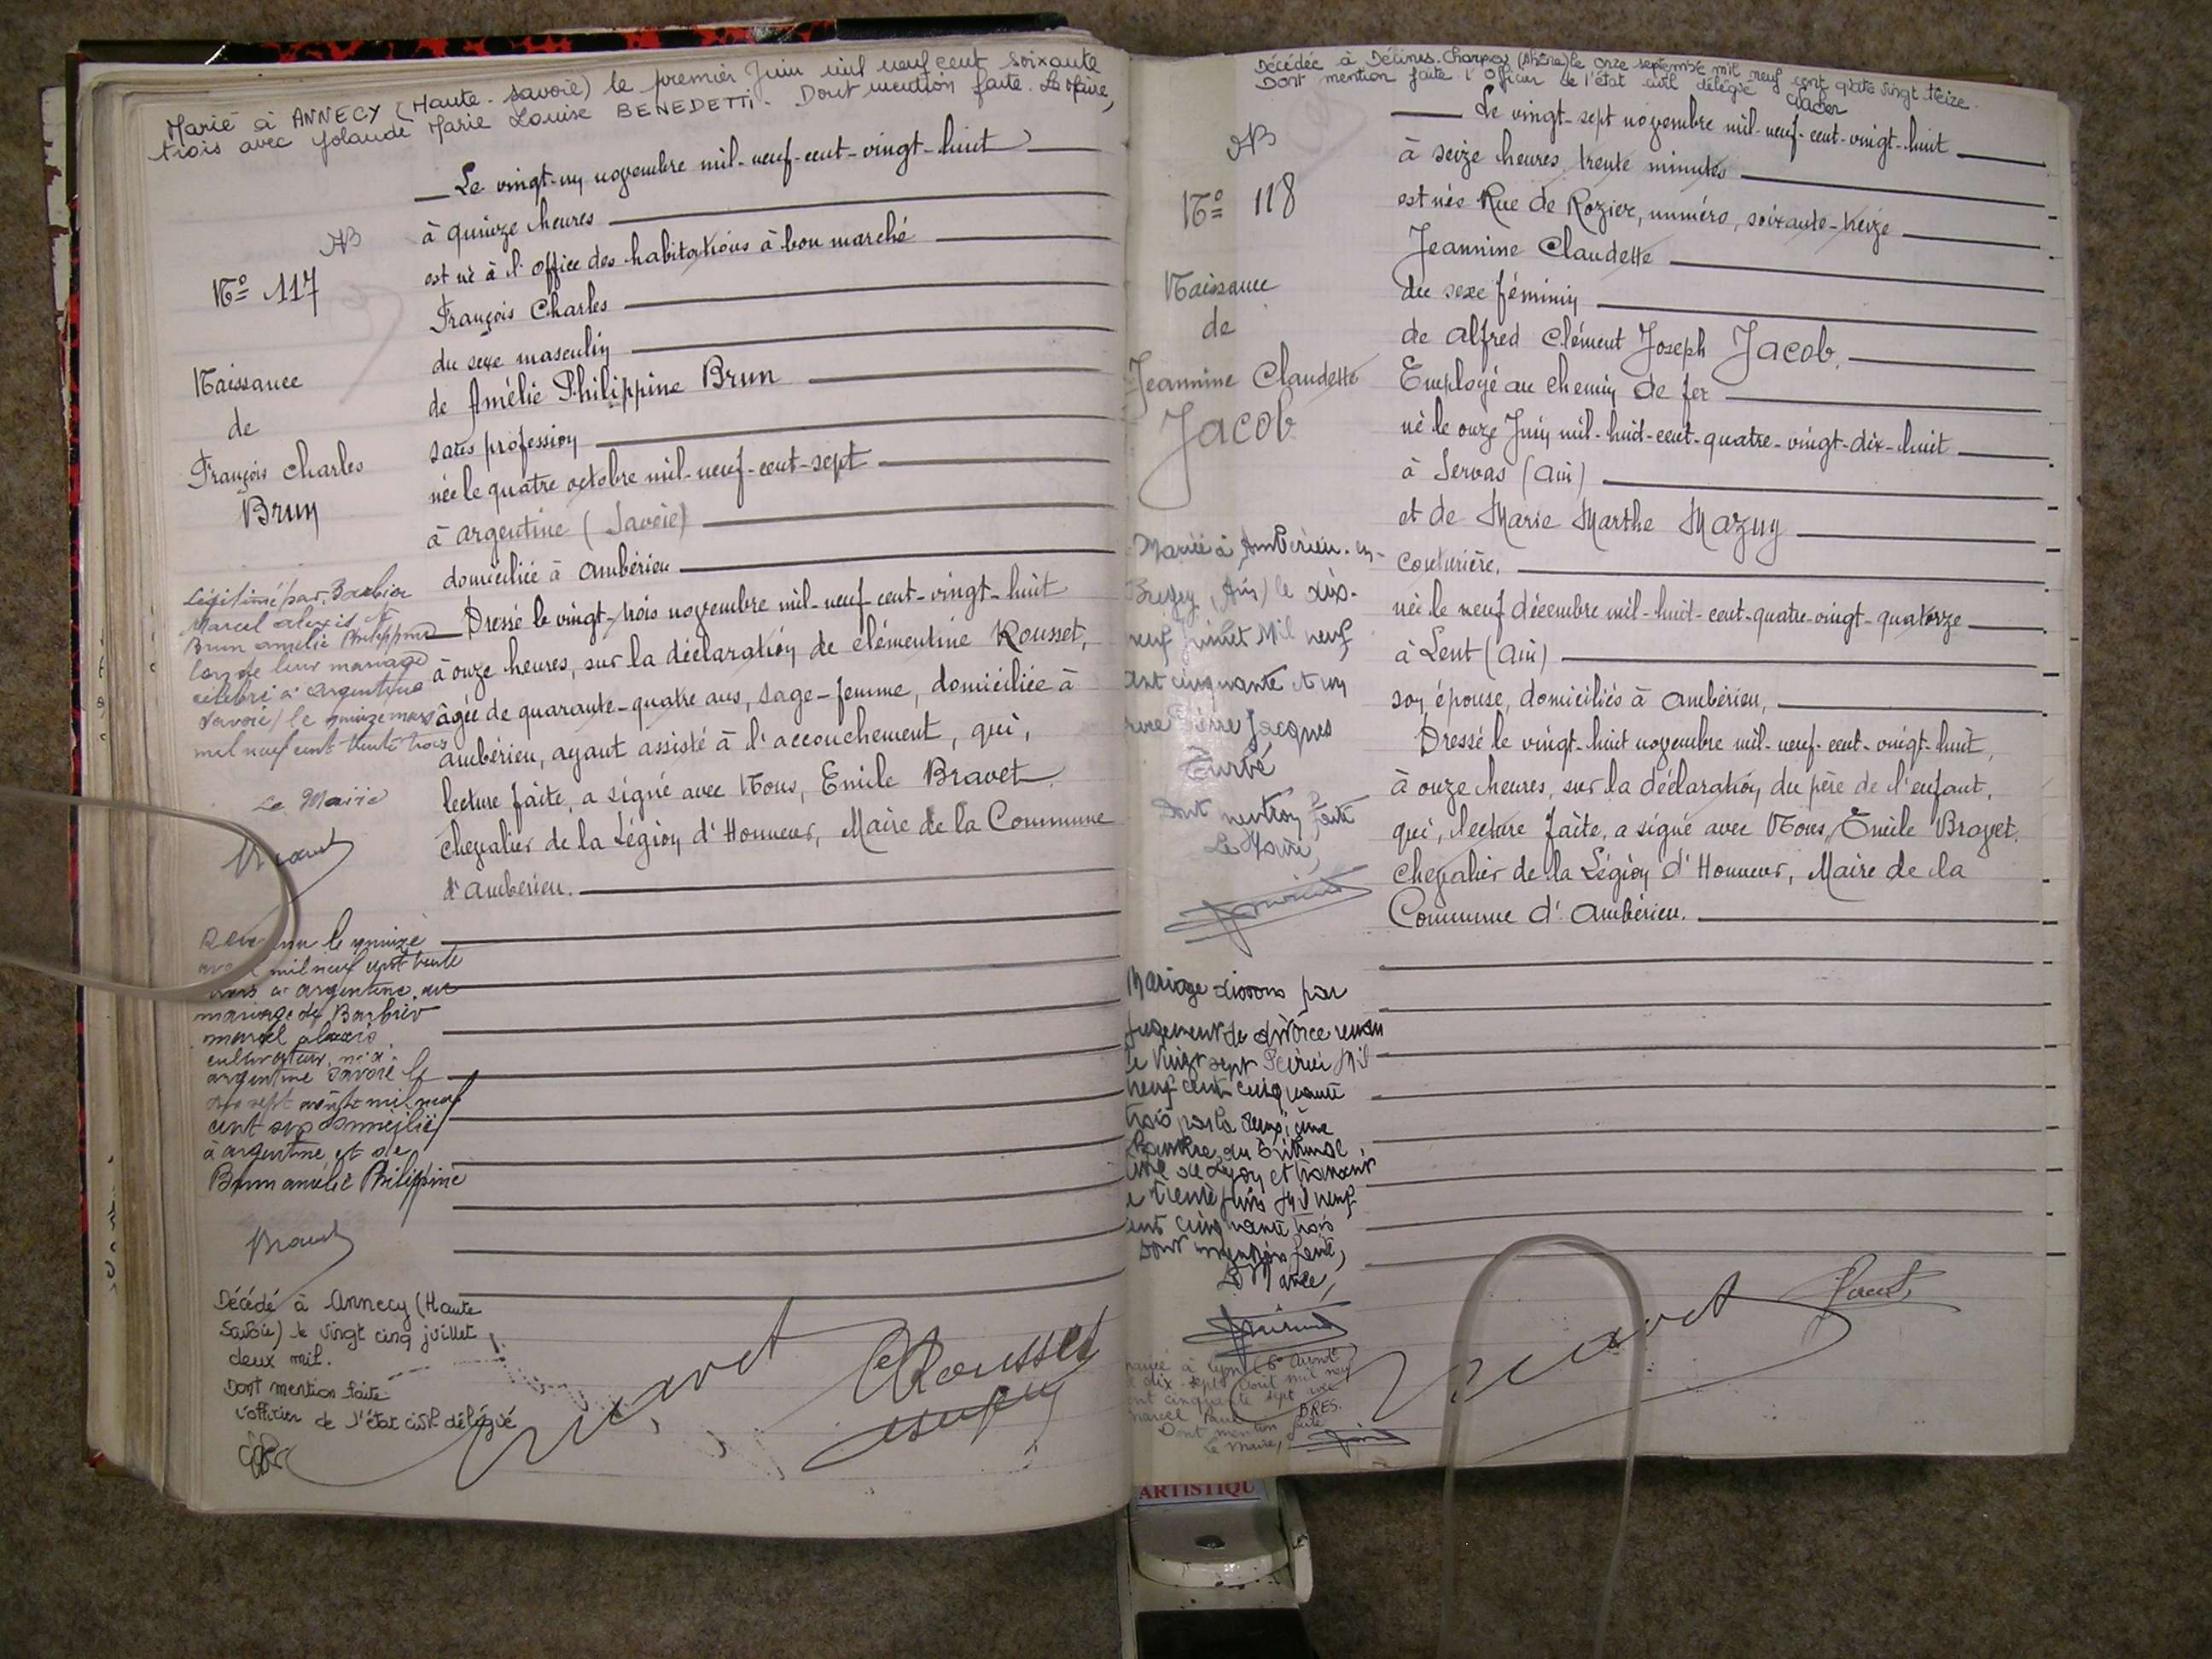 Marié à ANNECY (Haute-Savoie) le premier Juin mil neuf cent soixante
trois avec Yolande Marie Louise BENEDETTI. Dont mention faite. Le Maire,
N° 117
Naissance
de
François Charles
Brun
Légitimé par Barbier
Marcel alexis et
Brun amélie Philippine
lors de leur mariage
célébré à argentine
Savoie) le quinze mars
mil neuf cent trente trois
Le Maire
le quinze
mil neuf cent trente
trois à argentine
mariage de Barbier
marcel alexis
cultivateur né à
argentine Savoie le
sept août mil neuf
cent sept domicilié
à argentine et de
Brun amélie Philippine
Décédé à Annecy (Haute
Savoie) le vingt cinq juillet
deux mil.
Dont mention faite
L'officier de l'état civil délégué
Le vingt-un novembre mil-neuf-cent-vingt-huit
à quinze heures
est né à l'office des habitations à bon marché
François Charles
du sexe masculin
de Amélie Philippine Brun
sans profession
née le quatre octobre mil-neuf-cent-sept
à argentine (Savoie)
domiciliée à ambérieu
Dressé le vingt-trois novembre mil-neuf-cent-vingt-huit
à onze heures, sur la déclaration de clémentine Rousset,
âgée de quarante-quatre ans, sage-femme, domiciliée à
ambérieu, ayant assisté à l'accouchement, qui,
lecture faite, a signé avec Nous, Emile Bravet
chevalier de la Légion d'Honneur, Maire de la Commune
d'ambérieu.
Bravet
CRousset
Décédée à Décines-Charpieu (Rhône) le onze septembre mil neuf cent quatre vingt treize.
Dont mention faite l'Officier de l'état civil délégué
N° 118
Naissance
de
Jeannine Claudette
Jacob
Mariée à Ambérieu-en-
Bugey (Ain) le dix-
neuf juillet Mil neuf
cent cinquante et un
avec Pierre Jacques
Curbé
Dont mention faite
Le Maire,
Mariage dissous par
jugement de divorce rendu
le vingt sept Février Mil
neuf cent cinquante
trois par la deuxième
Chambre du Tribunal
civil de Lyon et transcrit
le trente juin Mil neuf
cent cinquante trois
Dont mention faite,
Le Maire,
Mariée à Lyon (6e Arrondt
le dix-sept Août mil neuf
cent cinquante sept avec
Marcel Paul BRES.
Dont mention faite
Le Maire,
Le vingt-sept novembre mil-neuf-cent-vingt-huit
à seize heures trente minutes
est née Rue de Rozier, numéro, soixante-treize
Jeannine Claudette
du sexe féminin
de alfred Clément Joseph Jacob,
Employé au chemin de fer
né le onze Juin mil-huit-cent-quatre-vingt-dix-huit
à Servas (ain)
et de Marie Marthe Mazuy
couturière,
née le neuf décembre mil-huit-cent-quatre-vingt-quatorze
à Lent (ain)
son épouse, domiciliés à ambérieu,
Dressé le vingt-huit novembre mil-neuf-cent-vingt-huit,
à onze heures, sur la déclaration du père de l'enfant,
qui, lecture faite, a signé avec Nous, Emile Bravet,
chevalier de la Légion d'Honneur, Maire de la
Commune d'ambérieu.
Bravet
ARTISTIQU